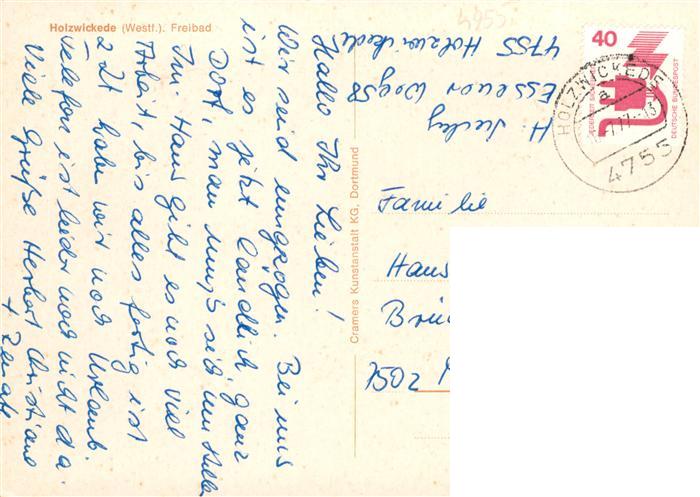 Holzwickede (Westf.). Freibad
Hallo Ihr Lieben!
Wir sind eingezogen. Bei uns
ist es jetzt ländlich ganz
Dort, man muß sich umstellen
Im Haus gibt es noch viel
Arbeit, bis alles fertig ist
z Zt haben wir noch Urlaub
Telefon ist leider noch nicht da.
Viele Grüße Herbert Christiane
+ Renate
Cramers Kunstanstalt KG, Dortmund
H.
Essener Weg 58
4755 Holzwickede
4755
40
DEUTSCHE BUNDESPOST
HOLZWICKEDE
a
77-13
4755
Familie
Hans
Brü
1502